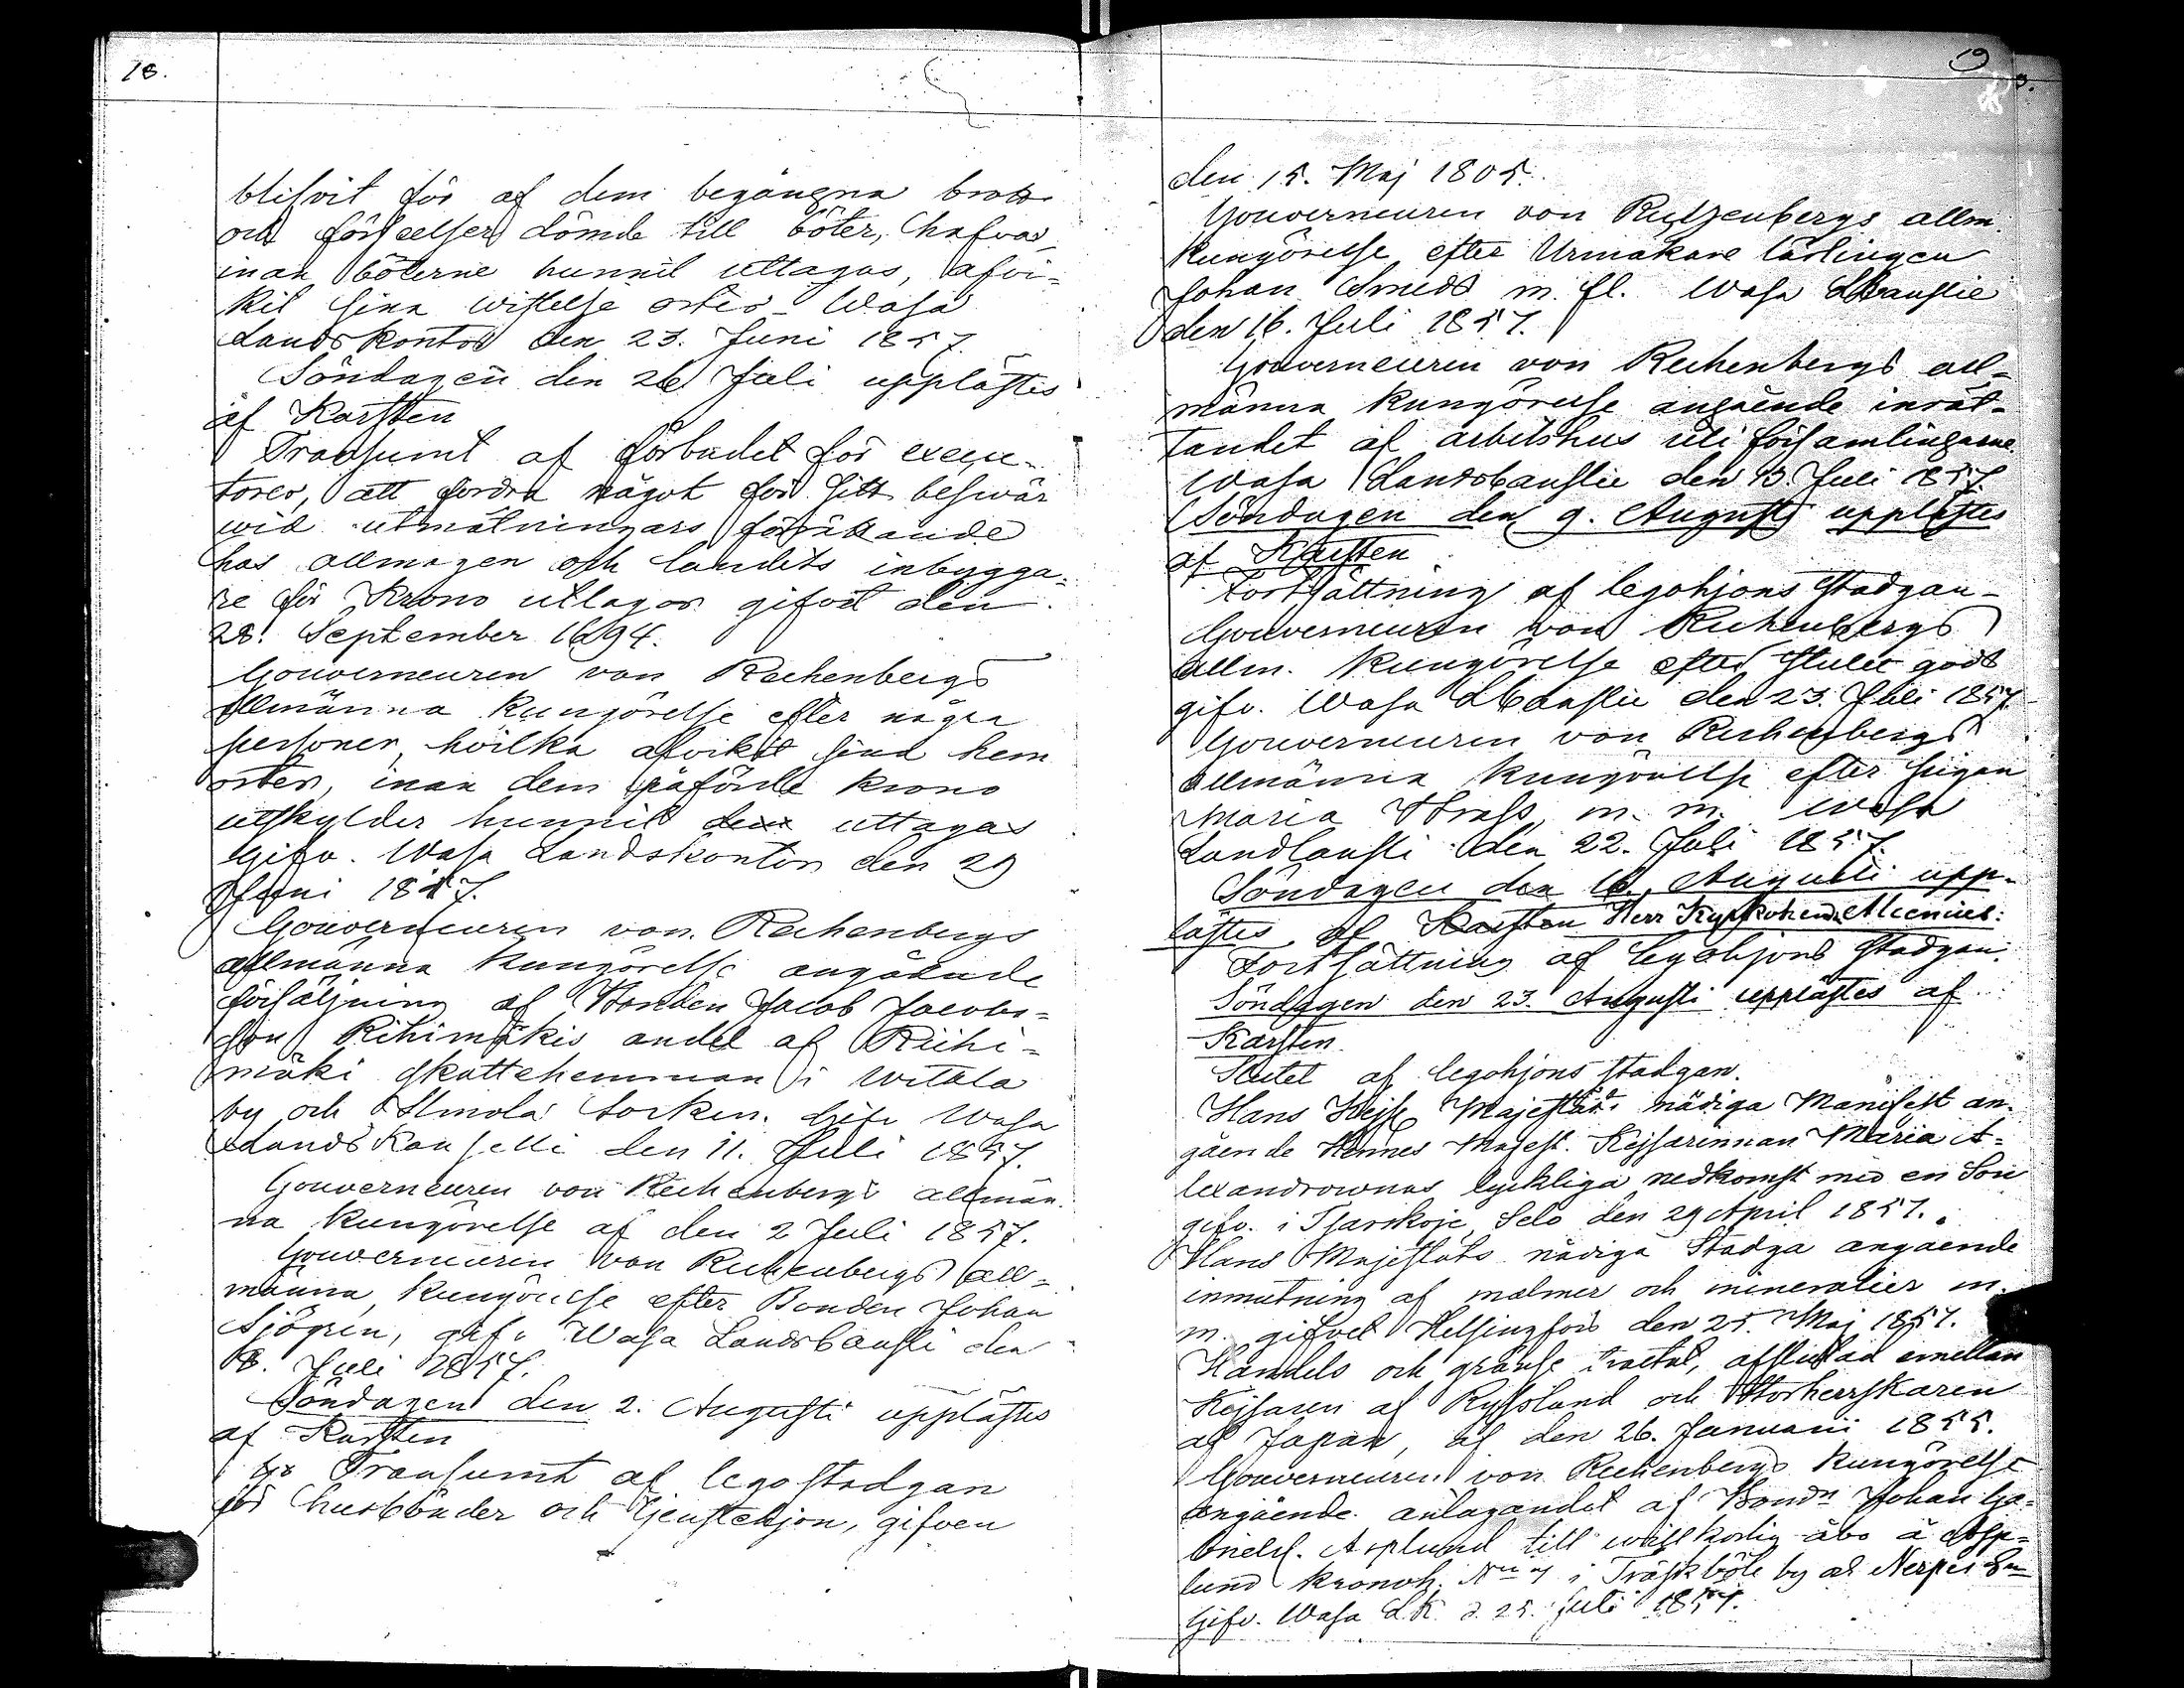 18.
blifvit för af dem begångna brott
och förseelser dömde till böter, hafva
inan böterne hunnit uttagas, afvi-
kit sina wistelse orter. Wasa
Landskontor den 23. Juni 1857.
Söndagen den 26 Juli upplästes
af Karsten
Transumt af förbudet för execu-
torer, att fordra något för sitt beswär
wid utmätningars förrättande
hos allmogen och landets inbygga-
re för Krono utlagor gifvit den
28. September 1694.
Gouverneuren von Rechenbergs
allmänna kungörelse efter några
personer, hvilka afvikit sina hem
orter, inan dem påförde krono
utskylder hunnit den uttagas
Gifv. Wasa Landskontor den 29
Juni 1857.
Gouverneuren von Rechenbergs
allmänna kungörelse angående
försäljning af Bonden Jacob Jacobs-
son Rihimäkis andel af Riihi-
mäki skattehemman i Witala
by och Ilmola socken. Gifv Wasa
Landskanselli den 11. Juli 1857.
Gouverneuren von Rechenbergs allmän
na kungörelse af den 2 Juli 1857.
Gouverneuren von Rechenbergs all-
männa kungörelse efter Bonden Johan
Sjögren, gifv Wasa Landscansli den
8. Juli 1857.
Söndagen den 2. Augusti upplästes
af Karsten
Transumt af legostadgan
för husbönder och tjenstehjon, gifven
19
den 15. Maj 1805.
Gouverneuren von Rechenbergs allm.
kungörelse efter Urmakare lärlingen
Johan Smeds m. fl. Wasa LCanslie
den 16. Juli 1857.
Gouverneuren von Rechenbergs all-
männa kungörelse angående inrät-
tandet af arbetshus uti församlingarne.
Wasa Landscanslie den 13. Juli 1857.
Söndagen den 9. Augusti upplästes
af Karsten
Fortsättning af legohjons stadgan-
Gouverneuren von Rechenbergs
allm. kungörelse efter stulet gods
gifv. Wasa LCanslie den 23. Juli 1857
Gouverneuren von Rechenbergs
allmänna kungörelse efter pigan
Maria m. m. Wasa
Landcansli den 22. Juli 1857.
Söndagen den 16. Augusti upp-
lästes af Karsten Herr Kyrkoherd. Alcenius:
Fortsättning af legohjons stadgan.
Söndagen den 23. Augusti upplästes af
Karsten.
Slutet af legohjons stadgan.
Hans Kejs. Majestäts nådiga Manifest an-
gående Hennes Majest. Kejsarinnan Maria A-
lexandrownas lyckliga nedkomst med en Son
gifv. i Tsarskoje Selo den 29 April 1857.
Hans Majestäts nådiga Stadga angaende
inmutning af malmer och mineralier m.
m. gifvet Helsingfors den 25. Maj 1857.
Handels och gränse tractat, afslutad emellan
Kejsaren af Ryssland och Storherrskaren
af Japan, af den 26. Januarii 1855.
Gouverneuren von Rechenbergs kungörelse
angående antagandet af Bondn Johan Ga-
brielss. Asplund till willkorlig åbo å Asp-
lund kronoh. i Träskböle by af Nerpes Sn
Gifv. Wasa L.K. d. 25. Juli 1857.